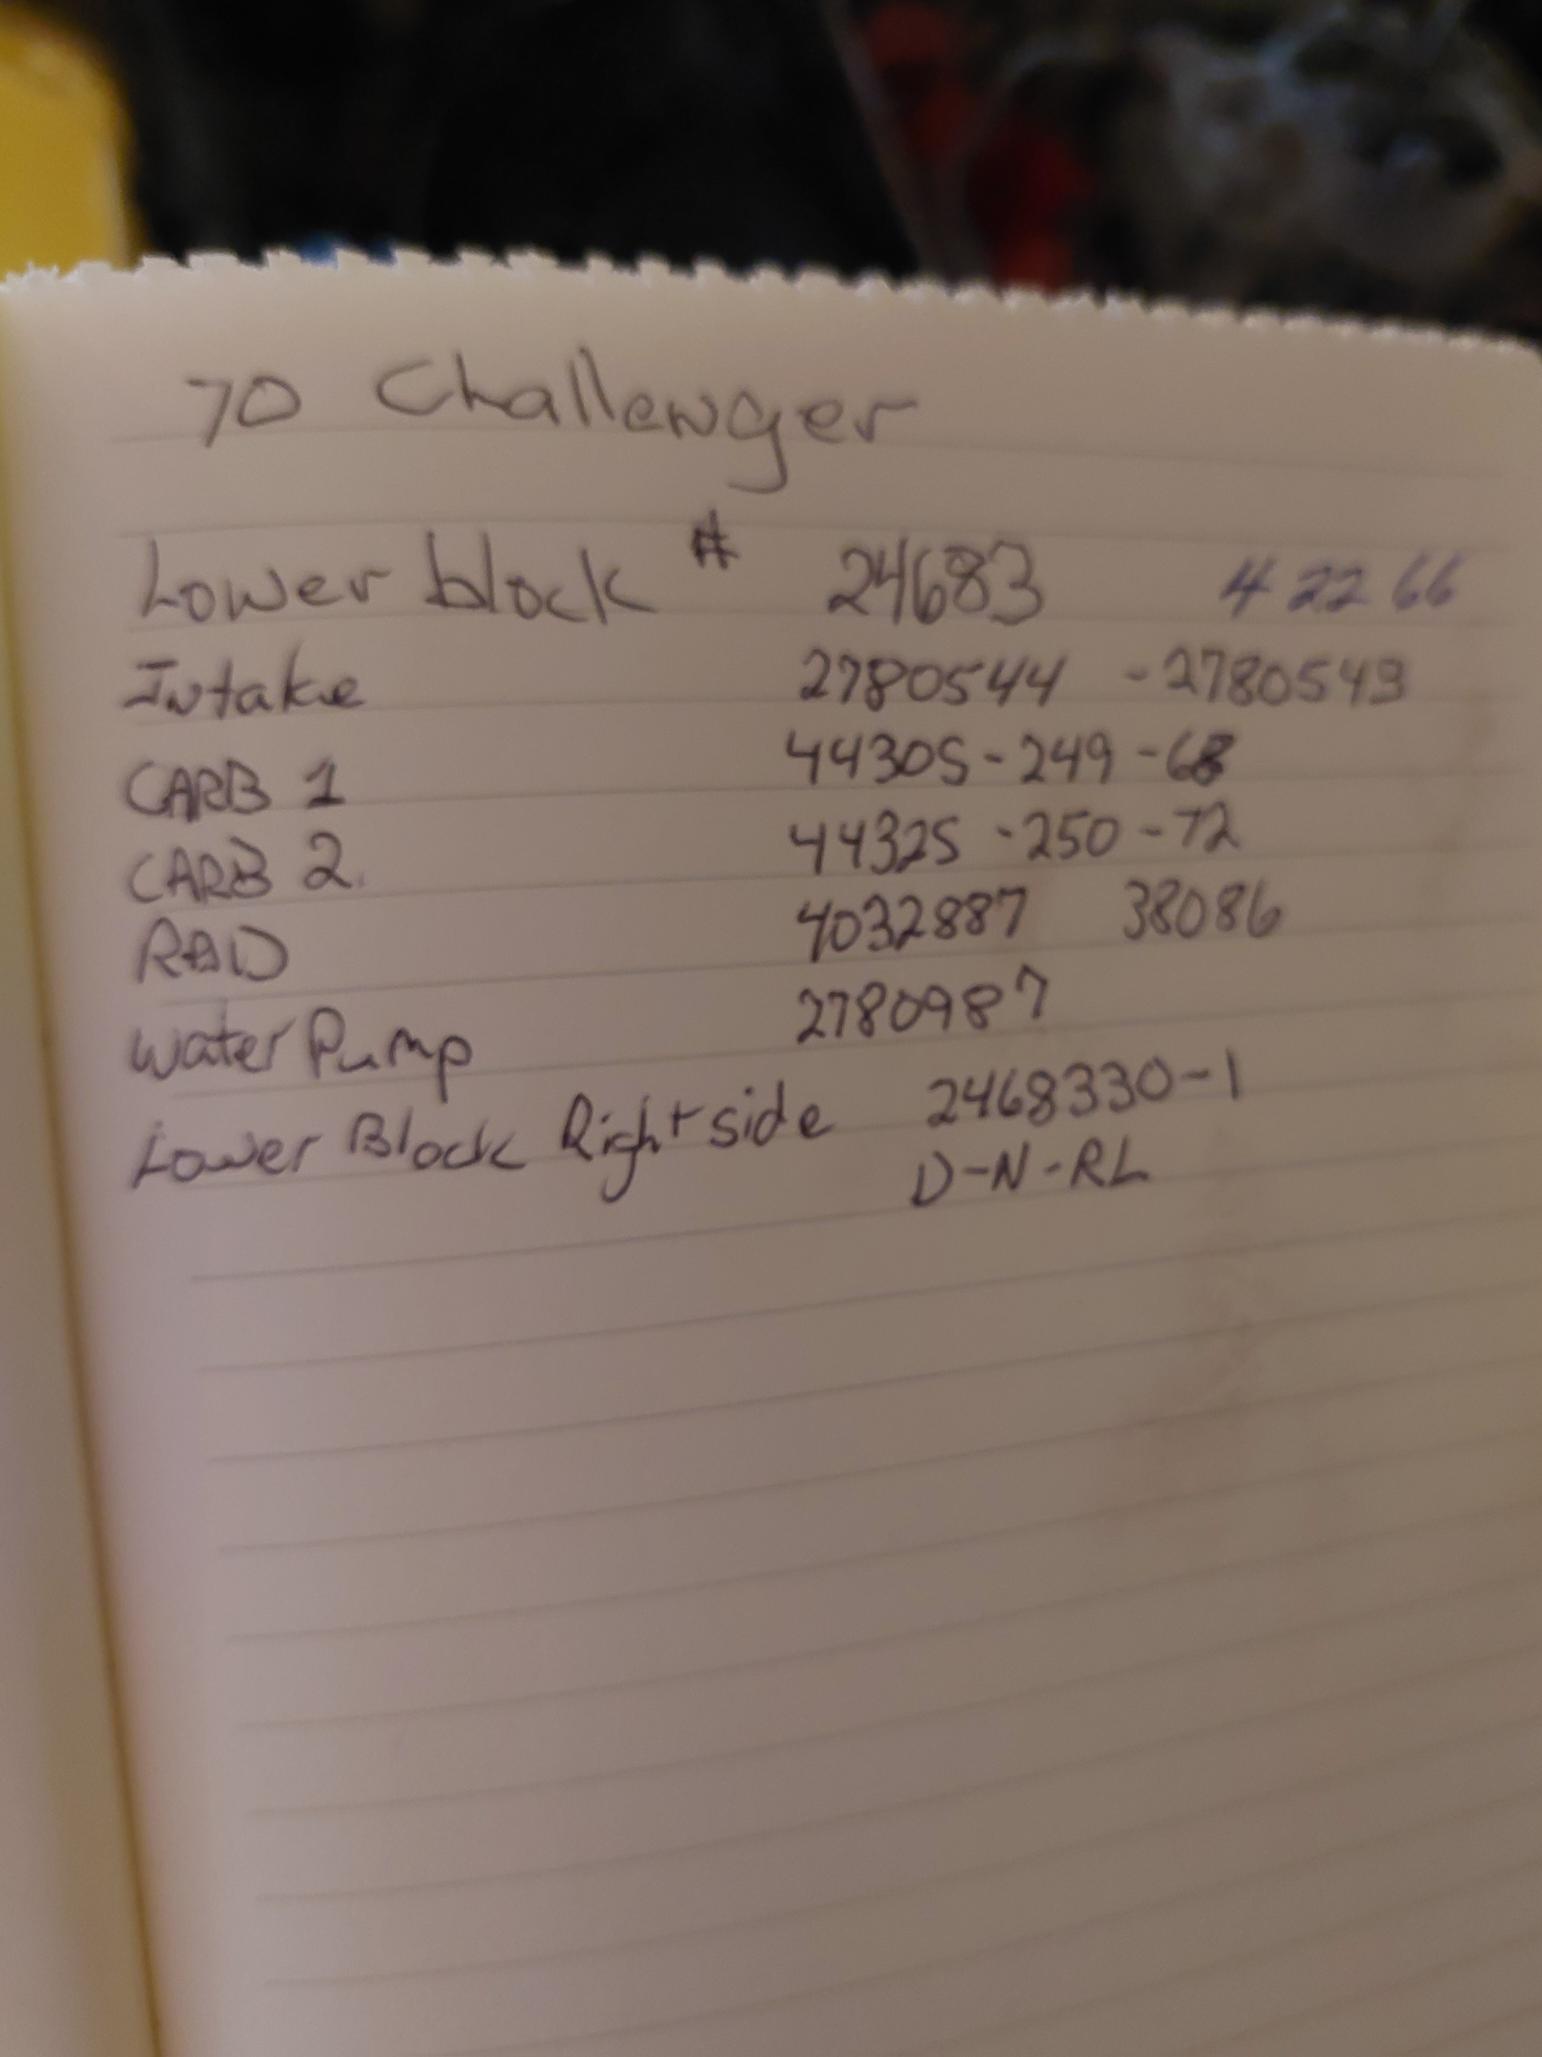 70 Challenger
Lower block # 24683 4 22 66
Intake 2780544 - 2780543
CARB 1 4430S - 249 - 68
CARB 2. 4432S - 250 - 72
RAD 4032887 38086
Water Pump 2780987
Lower Block Right side 2468330-1
D-N-RL